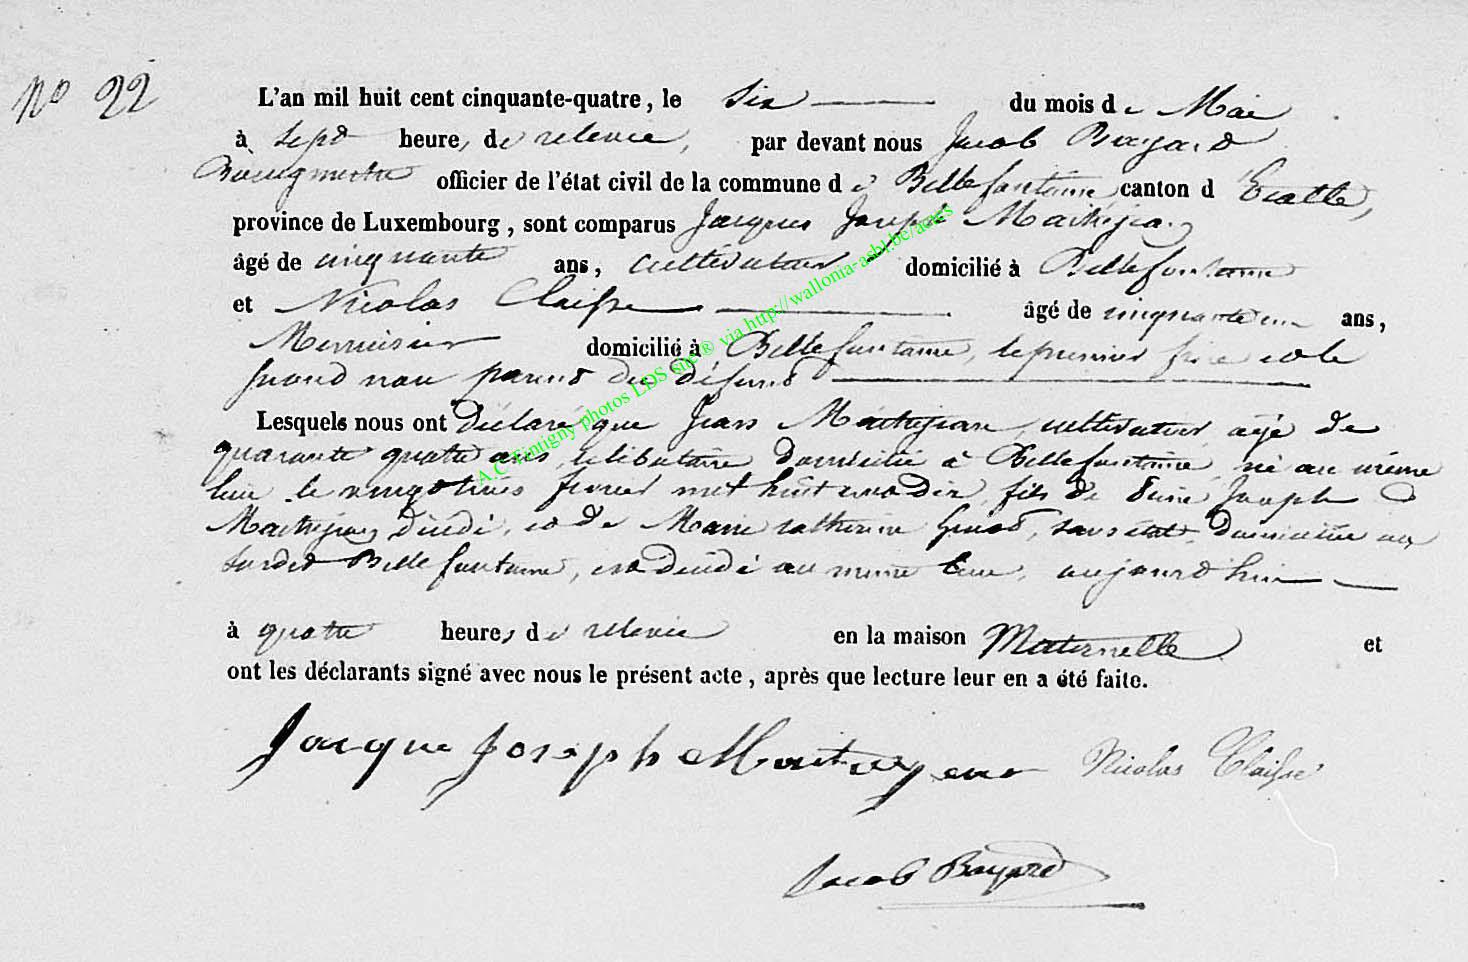 No 22
L'an mil huit cent cinquante-quatre, le six du mois de Mai
à sept heures de relevée, par devant nous Jacob Bayard
Bourgmestre officier de l'état civil de la commune de Bellefontaine, canton d'Etalle,
province de Luxembourg, sont comparus Jacques Joseph Mathejean
âgé de cinquante ans, cultivateur domicilié à Bellefontaine
et Nicolas Claisse âgé de cinquante un ans,
Menuisier domicilié à Bellefontaine, le premier frère et le
second non parent du défunt
Lesquels nous ont Déclaré que Jean Mathejean, cultivateur, âgé de
quarante quatre ans, célibataire domicilié à Bellefontaine, né au même
lieu le vingt trois février mil huit cent dix, fils de Joseph
Mathejean, décédé, et de Marie Catherine, sans état, Domiciliée au
susdit Bellefontaine, est décédé au même lieu, aujourd'hui
à quatre heures de relevée en la maison Maternelle et
ont les déclarants signé avec nous le présent acte, après que lecture leur en a été faite.
Jacque Joseph Nicolas Claisse
Jacob Bayard
A.C. Tintigny photos LDS site ® via http://wallonia-asbl.be/actes